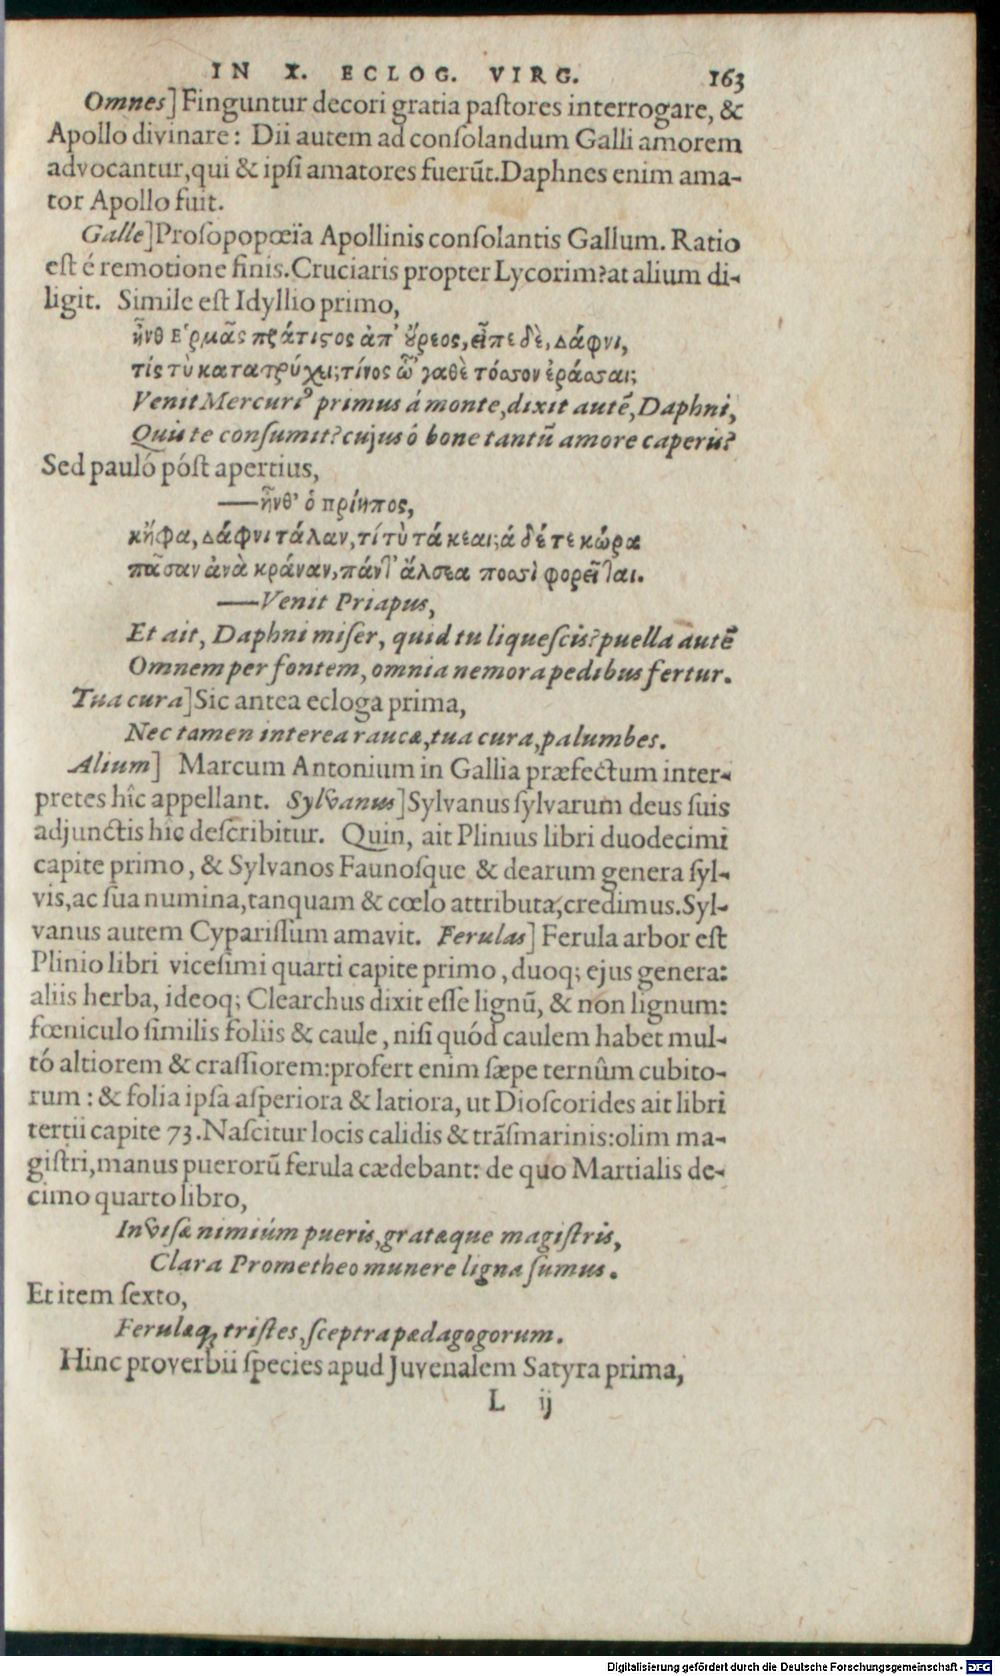 IN X. ECLOG. VIRG. 163
Omnes] Finguntur decori gratia paſtores interrogare, &
Apollo divinare: Dii autem ad conſolandum Galli amorem
advocantur, qui & ipſi amatores fuerūt. Daphnes enim ama-
tor Apollo fuit.
Galle] Proſopopœïa Apollinis conſolantis Gallum. Ratio
eſt é remotione finis. Cruciaris propter Lycorim? at alium di-
ligit. Simile eſt Idyllio primo,
ἦνθ Ἑρμᾶς πράτιςος ἀπ' ὤρεος, εἶπε δὲ, Δάφνι,
τίς τὺ κατατρύχει; τίνος ὦ 'γαθὲ τόσσον ἐράσσαι;
Venit Mercuri⁹ primus á monte, dixit autē, Daphni,
Quis te conſumit? cujus ó bone tantū amore caperis?
Sed pauló póſt apertius,
—ἦνθ' ὁ πρίηπος,
κἤφα, Δάφνι τάλαν, τί τὺ τάκεαι; ἁ δέ τε κώρα
πᾶσαν ἀνὰ κράναν, πάντ' ἄλσεα ποσσὶ φορεῖται.
—Venit Priapus,
Et ait, Daphni miſer, quid tu liqueſcis? puella autē
Omnem per fontem, omnia nemora pedibus fertur.
Tua cura] Sic antea ecloga prima,
Nec tamen interea raucæ, tua cura, palumbes.
Alium] Marcum Antonium in Gallia præfectum inter-
pretes hîc appellant. Sylvanus] Sylvanus ſylvarum deus ſuis
adjunctis hîc deſcribitur. Quin, ait Plinius libri duodecimi
capite primo, & Sylvanos Faunoſque & dearum genera ſyl-
vis, ac ſua numina, tanquam & cœlo attributa, credimus. Syl-
vanus autem Cypariſſum amavit. Ferulas] Ferula arbor eſt
Plinio libri viceſimi quarti capite primo, duoq; ejus genera:
aliis herba, ideoq; Clearchus dixit eſſe lignū, & non lignum:
fœniculo ſimilis foliis & caule, niſi quód caulem habet mul-
tó altiorem & craſſiorem: profert enim ſæpe ternûm cubito-
rum: & folia ipſa aſperiora & latiora, ut Dioſcorides ait libri
tertii capite 73. Naſcitur locis calidis & trāſmarinis: olim ma-
giſtri, manus puerorū ferula cædebant: de quo Martialis de-
cimo quarto libro,
Inviſæ nimiúm pueris, gratæque magiſtris,
Clara Prometheo munere ligna ſumus.
Et item ſexto,
Ferulæq; triſtes, ſceptra pædagogorum.
Hinc proverbii ſpecies apud Juvenalem Satyra prima,
L ij
Digitalisierung gefördert durch die Deutsche Forschungsgemeinschaft - DFG